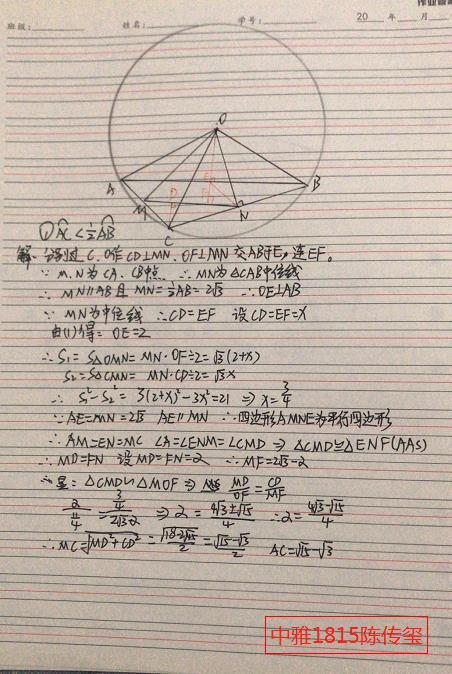 作业
班级: 姓名: 学号: 20 年 月
O
E
A
B
D
F
M
N
C
① AC < ½AB
解: 分别过 C. O作 CD⊥MN. OF⊥MN 交AB于E, 连EF.
∵ M.N为CA. CB中点 ∴ MN为△CAB中位线
∴ MN∥AB 且 MN=½AB=2√3 ∴OE⊥AB
∵ MN为中位线 ∴CD=EF 设CD=EF=x
由(1)得: OE=2
∴ S₁ = S△OMN = MN·OF÷2=√3(2+x)
S₂ = S△CMN = MN·CD÷2=√3x
∴ S₁²-S₂² = 3(2+x)²-3x²=21 ⇒ x=3/4
∵AE=MN=2√3 AE∥MN ∴四边形AMNE为平行四边形
∴ AM=EN=MC ∠A=∠ENM=∠CMD ⇒ △CMD≌△ENF(AAS)
∴MD=FN 设MD=FN=2 ∴MF=2√3-2
∴ 显: △CMD∽△MOF ⇒ MD/OF = CD/MF
2/(11/4) = (3/4)/(2√3-2) ⇒ 2=(4√3±√15)/4 ∴2=(4√3-√15)/4
∴ MC=√(MD²+CD²) = √(18-2√45)/2 = (√15-√3)/2 AC=√15-√3
中雅1815陈传玺